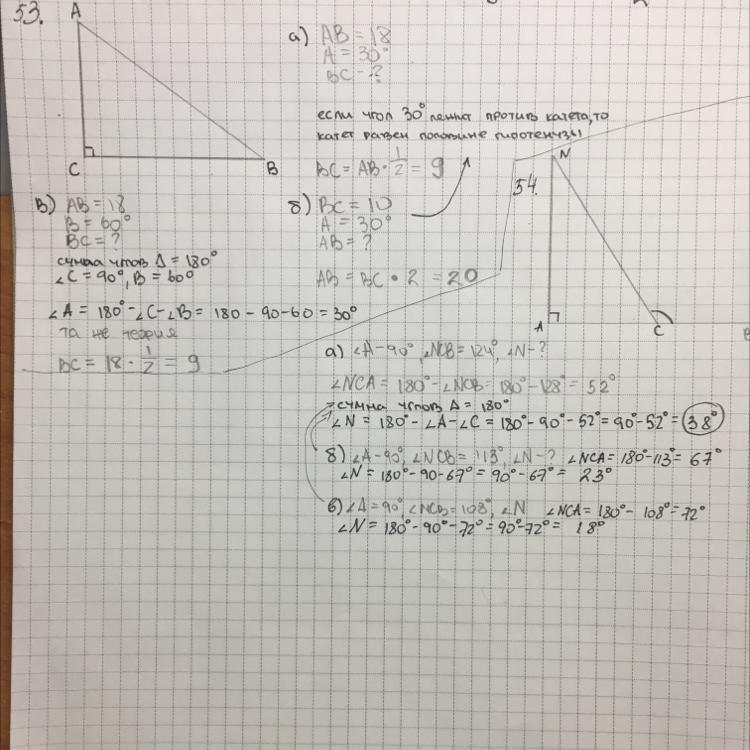 53.
A
C
B
а) AB = 18
A = 30°
BC - ?
если угол 30° лежит против катета, то
катет равен половине гипотенузы
BC = AB · 1/2 = 9
б) BC = 10
A = 30°
AB = ?
AB = BC · 2 = 20
в) AB = 18
B = 60°
BC = ?
сумма углов Δ = 180°
∠C = 90°, B = 60°
∠A = 180° - ∠C - ∠B = 180 - 90 - 60 = 30°
та же теория
BC = 18 · 1/2 = 9
54.
N
A
C
B
а) ∠A - 90°, ∠NCB = 124°, ∠N - ?
∠NCA = 180° - ∠NCB = 180° - 128° = 52°
сумма углов Δ = 180°
∠N = 180° - ∠A - ∠C = 180° - 90° - 52° = 90° - 52° = 38°
б) ∠A - 90°, ∠NCB = 113°, ∠N - ? ∠NCA = 180° - 113° = 67°
∠N = 180° - 90 - 67° = 90° - 67° = 23°
в) ∠A = 90°, ∠NCB = 108°, ∠N ∠NCA = 180° - 108° = 72°
∠N = 180° - 90° - 72° = 90° - 72° = 18°